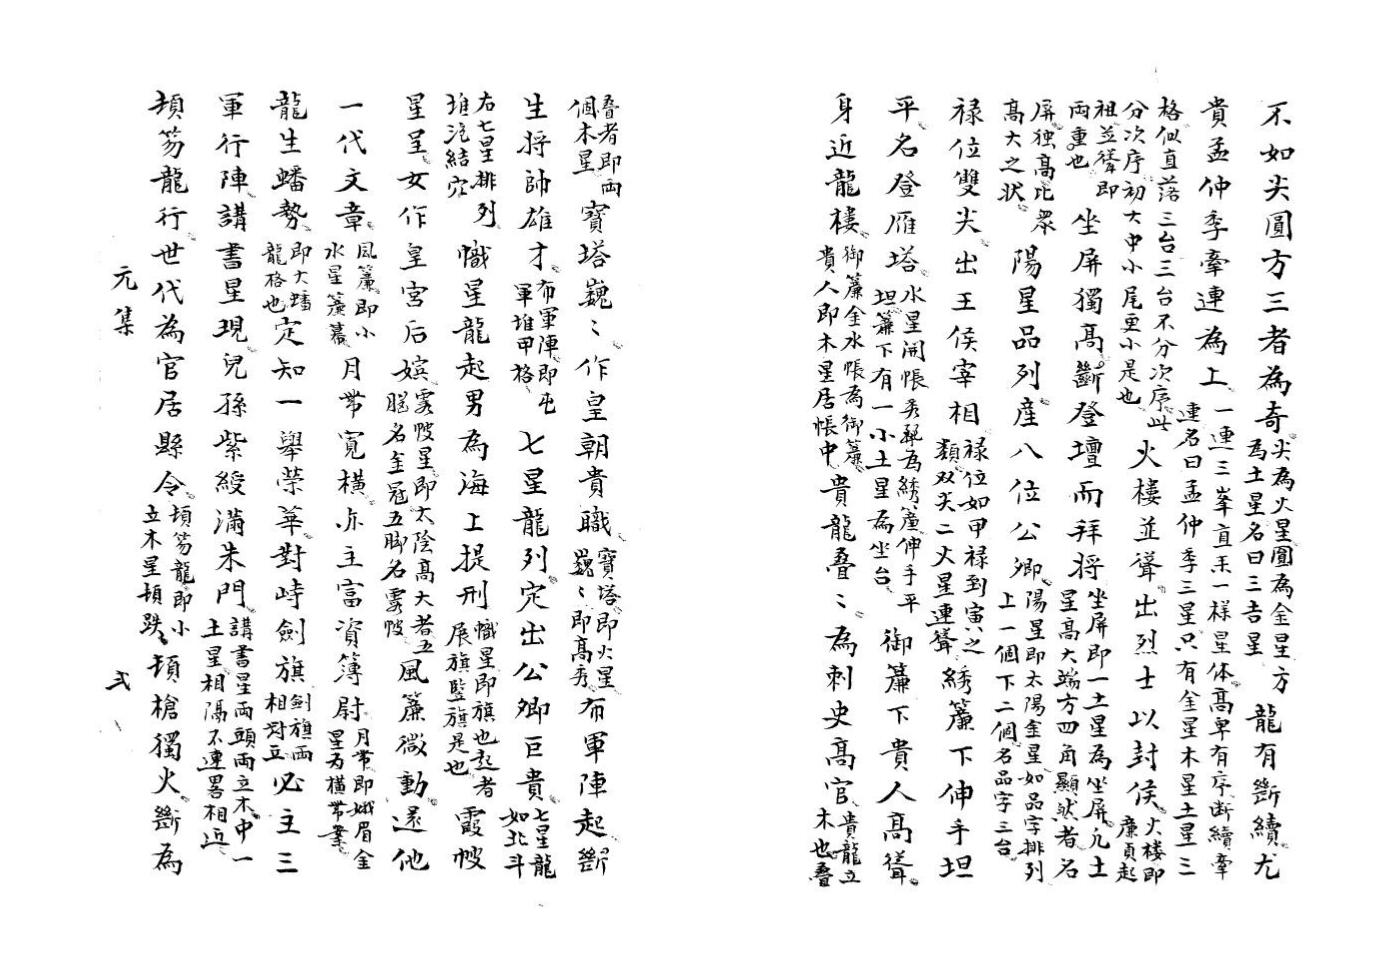 不如尖圓方三者為奇尖為火星圓為金星方為土星名曰三吉星龍有斷續尤
貴孟仲季牽連為上一連三峯直來一樣星体高卑有序断續牽連名曰孟仲季三星只有金星木星土星三
格似直落三台三台不分次序此分次序初大中小尾更小是也火樓並聳出烈士以封侯火楼即廉貞起
祖並聳即両重也坐屏獨高斷登壇而拜将坐屏即一土星為坐屏凢土星高大端方四角顯然者名
屏独高比衆高大之状陽星品列産八位公卿陽星即太陽金星如品字排列上一個下二個名品字三台
祿位雙尖出王侯宰相禄位如甲禄到寅之類双尖二火星連聳綉簾下伸手坦
平名登雁塔水星開帳秀麗為綉簾伸手平坦簾下有一小土星為坐台御簾下貴人高聳
身近龍樓御簾金水帳為御簾貴人即木星居帳中貴龍叠〻為刺史高官貴龍立木也叠
叠者即両個木星寳塔巍〻作皇朝貴職寳塔即火星巍〻即高秀布軍陣起斷
生将帥雄才布軍陣即屯軍堆甲格七星龍列定出公卿巨貴七星龍如北斗
右七星排列堆泥結穴幟星龍起男為海上提刑幟星即旗也起者展旗竪旗是也霞帔
星呈女作皇宮后嬪霞帔星即太陰高大者五腦名金冠五脚名霞帔風簾微動還他
一代文章風簾即小水星簾幕月帶寬横亦主富資簿尉月帶即娥眉金星為横帶業
龍生蟠勢即大蟠龍格也定知一舉荣華對峙劍旗剑旗両相对立必主三
軍行陣講書星現兒孫紫綬滿朱門講書星両頭両立木中一土星相隔不連畧相近
頓笏龍行世代為官居縣令頓笏龍即小立木星頓跌頓槍獨火斷為
元集
弍